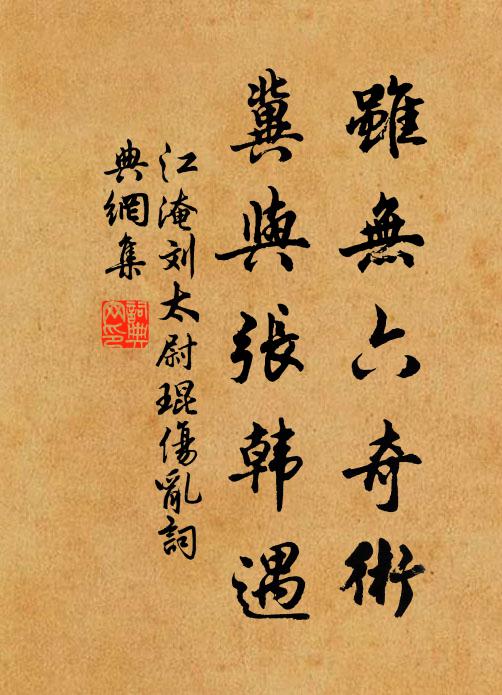 雖無六奇術
冀與張韩遇
江淹刘太尉琨傷亂詞
典網集
詞典網印